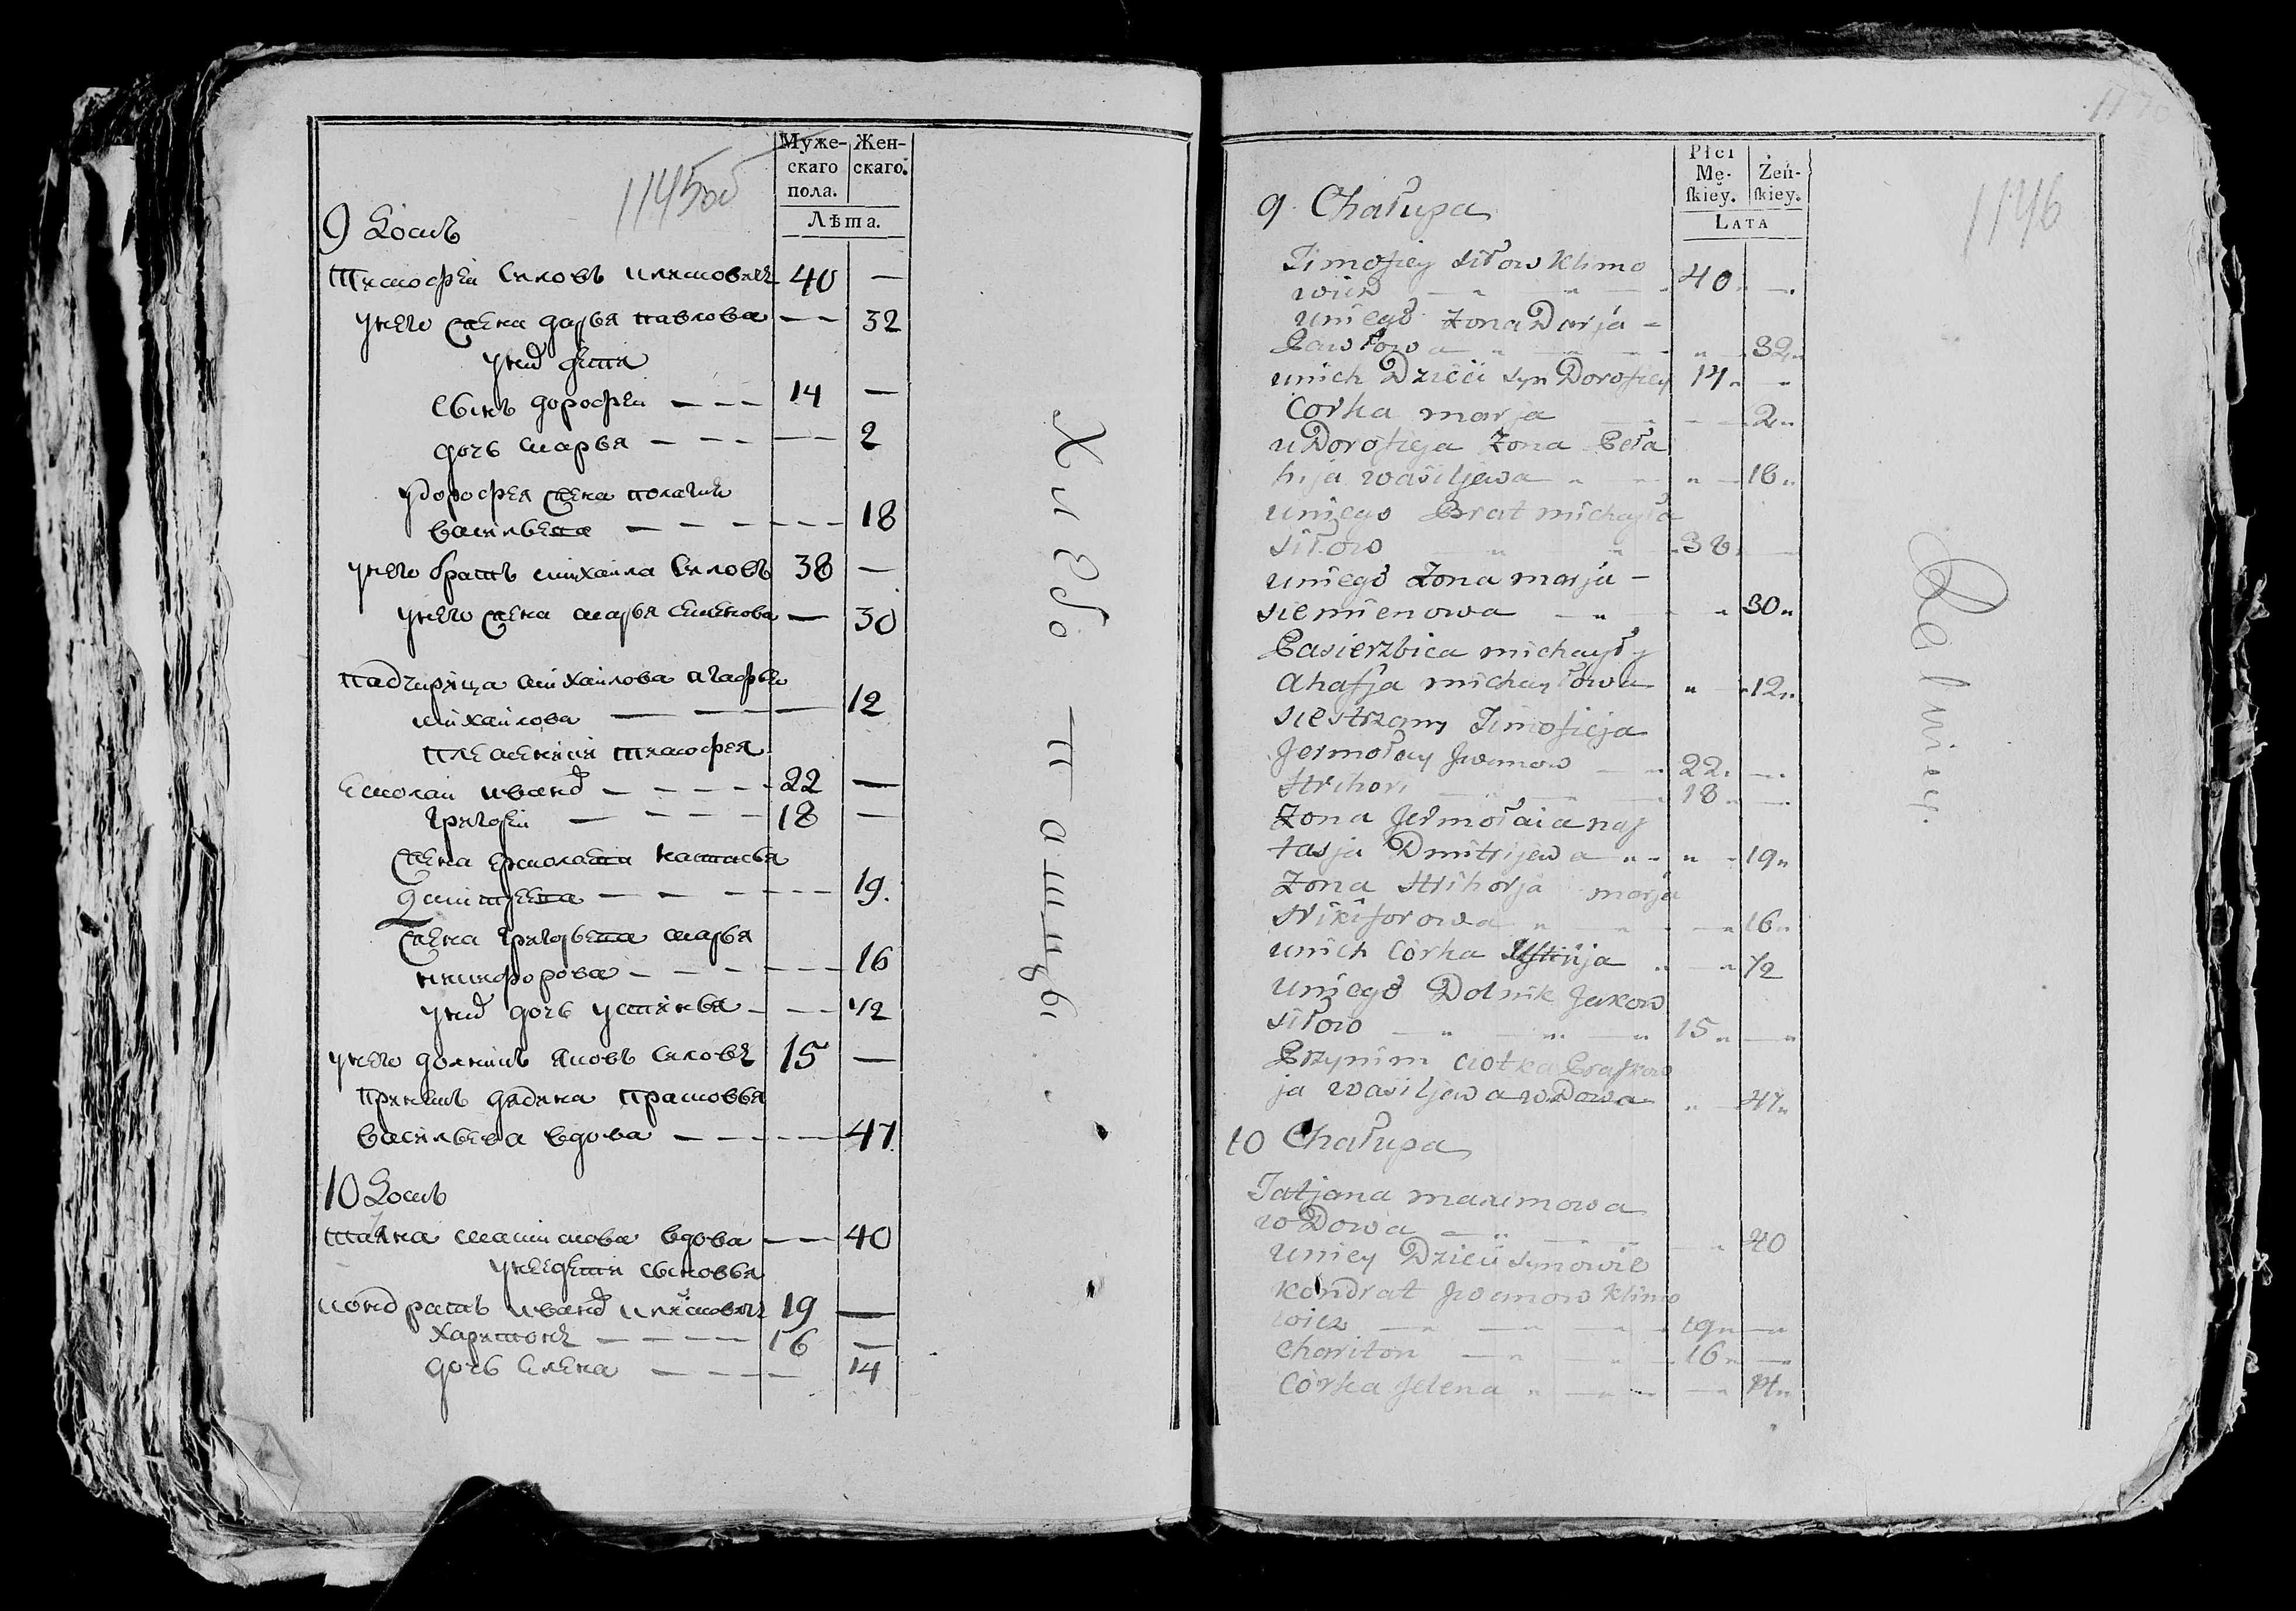 1145об
Муже-
скаго
пола.
Жен-
скаго.
Лѣта.
9 Домъ
Тимофей Силовъ Климовичъ 40 —
у него жена дарья павлова — — 32
у них дети
сынъ дорофей — — — 14 —
дочь марья — — — — — 2
у дорофея жена полагия
васильева — — — — — — 18
у него братъ михайла Силовъ 38 —
у него жена марья семенова — 30
падчирица михайлова агафья
михайлова — — — — 12
племеники тимофея
Емолаи иванов — — — — — 22 —
григорей — — — — 18 —
жена ермолаева настасья
Дмитреева — — — — — — 19.
жена григорьева марья
никифорова — — — — — — 16
у них дочь устинья — — — 1/2
у него долникъ яковъ Силовъ 15 —
при нем дядина прасковья
васильева вдова — — — — — 47
10 Домъ
татяна максимова вдова — — 40
у нее дети сыновья
кондратъ иванов климовичъ 19 —
харитонъ — — — — 16 —
дочь елена — — — — 14
Хлебо пашцы.
1146
Płci
Mę-
ſkiey.
Żeń-
ſkiey.
LATA
9 Chałupa
Timofiey Siłow Klimo
wicz — „ „ — 40 „ —
uniego Zona Darja -
Pawłowa „ — „ — „ — 32 „
unich Dzieci syn Dorofiey 14 „ — „
Corka marja — — 2 „
u Dorofieja Zona Peła
hija wasiljewa „ — „ — 18 „
uniego Brat michayła
Siłow „ „ 38 „ —
uniego Zona marja —
siemienowa — „ „ 30 „
Pasierzbica michayły
Ahafja michayłowa „ — 12 „
siestrzany Timofieja
Jermołay Jwanow — „ 22 „ — „
Hrihori — „ — 18 „ —
Zona Jermołaia nas
tasja Dmitrijewa „ - „ - 19 „
Zona Hrihorja marja
Nikiforowa „ — „ — „ 16 „
unich Córka Ustinja „ — „ 1/2
uniego Dolnik Jakow
Siłow — „ — „ — „ 15 „ — „
Przynim ciotka Praskow
ja wasiljewa wDowa „ — 47 „
10 Chałupa
Tatjana maximowa
wDowa — „ — „ 40
uniey Dzieci synowie
Kondrat Jwanow Klimo
wicz — „ — „ — „ 19 „ — „
Chariton — „ „ — 16 „ —
Córka Jelena „ — „ — — „ 14 „